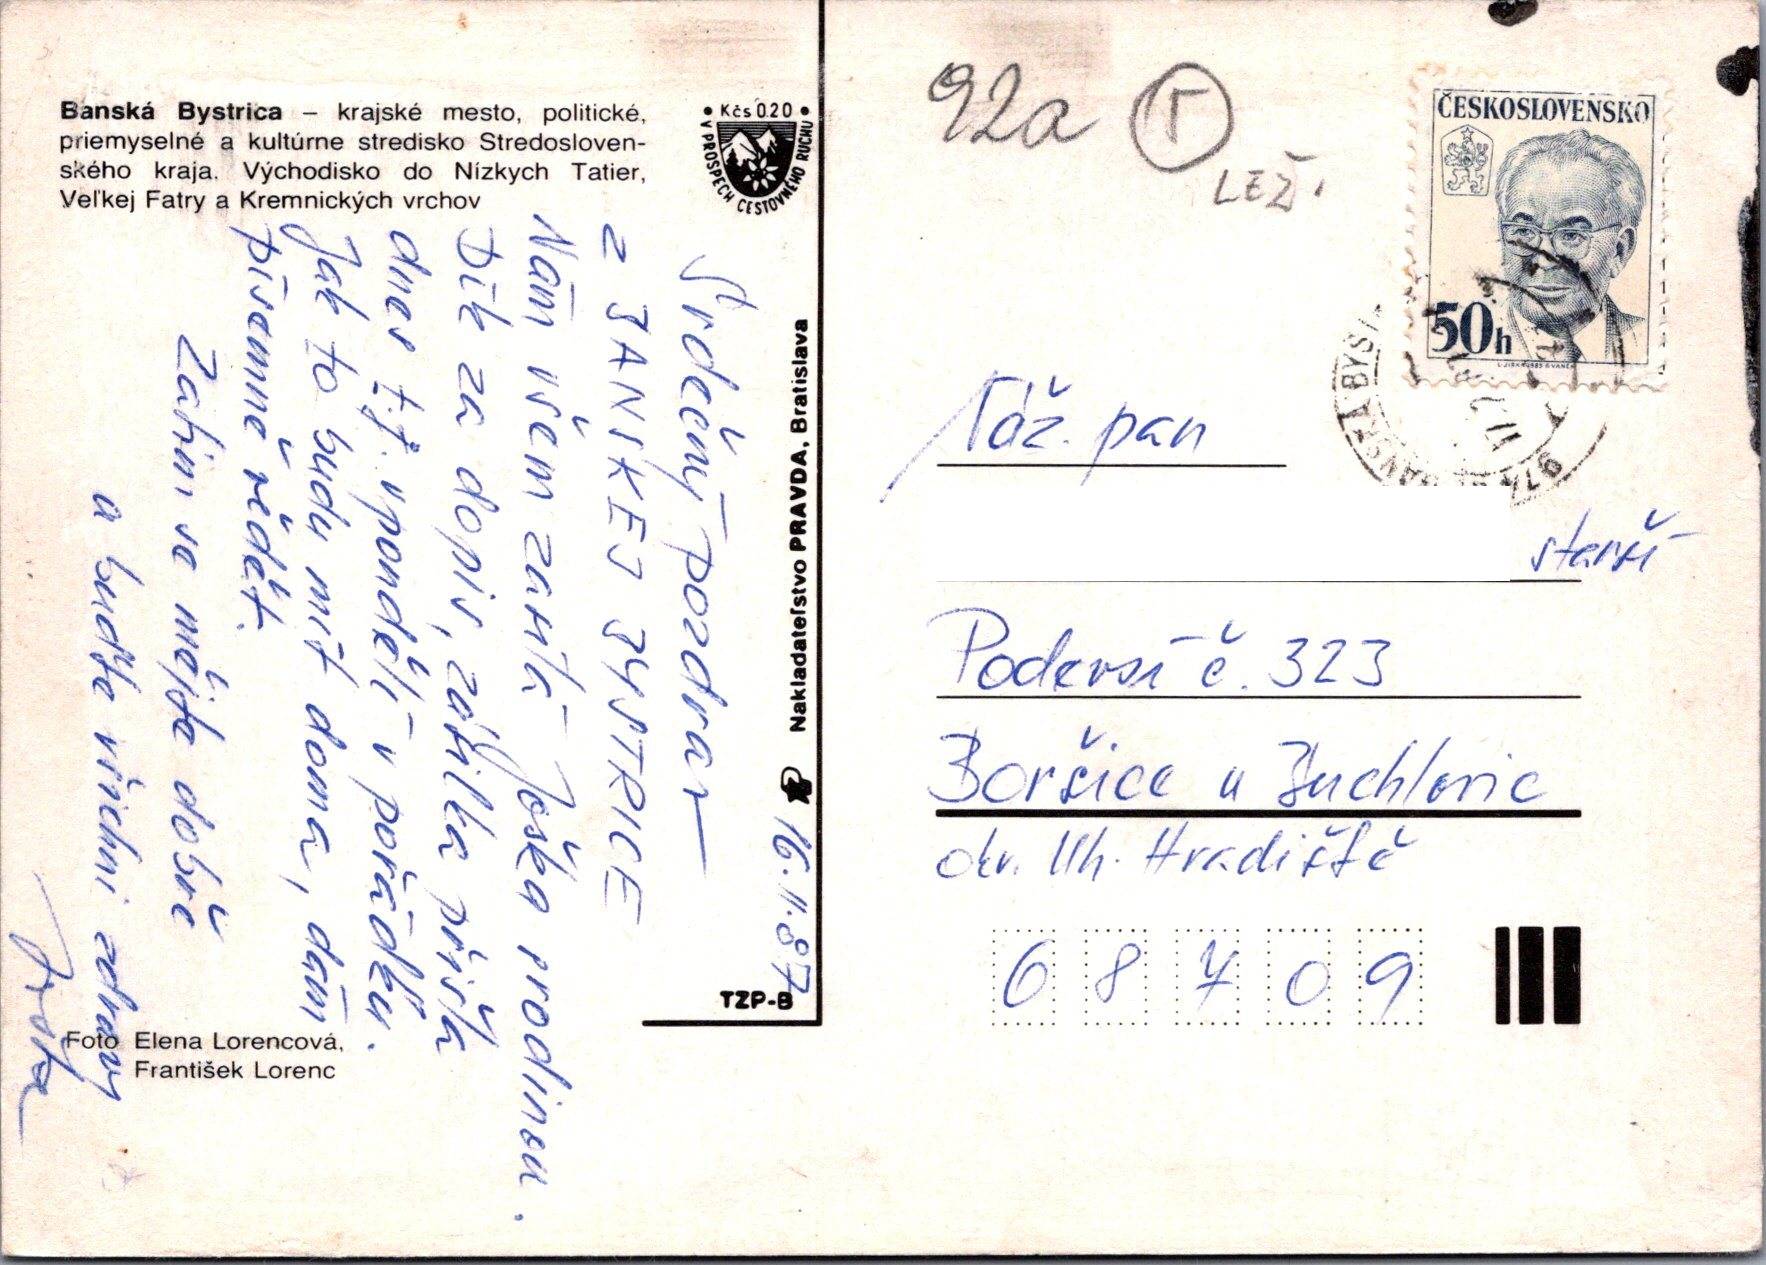 Banská Bystrica – krajské mesto, politické,
priemyselné a kultúrne stredisko Stredosloven-
ského kraja. Východisko do Nízkych Tatier,
Veľkej Fatry a Kremnických vrchov
Kčs 0.20
V PROSPECH CESTOVNÉHO RUCHU
Srdečný pozdrav
z BANSKEJ BYSTRICE
Vám všem zasílá Joška s rodinou.
Dík za dopis, zásilka přišla
dnes t.j. v pondělí v pořádku.
Jak to budu mít doma, dám
písemně vědět.
Zatím se mějte dobře
a buďte všichni zdrávi
Joška
16.11.87
Nakladateľstvo PRAVDA, Bratislava
TZP-B
Foto Elena Lorencová,
František Lorenc
92a
LEŽ.
ČESKOSLOVENSKO
50h
Váž. pan
starší
Podversí č. 323
Boršice u Buchlovic
okr. Uh. Hradiště
68709